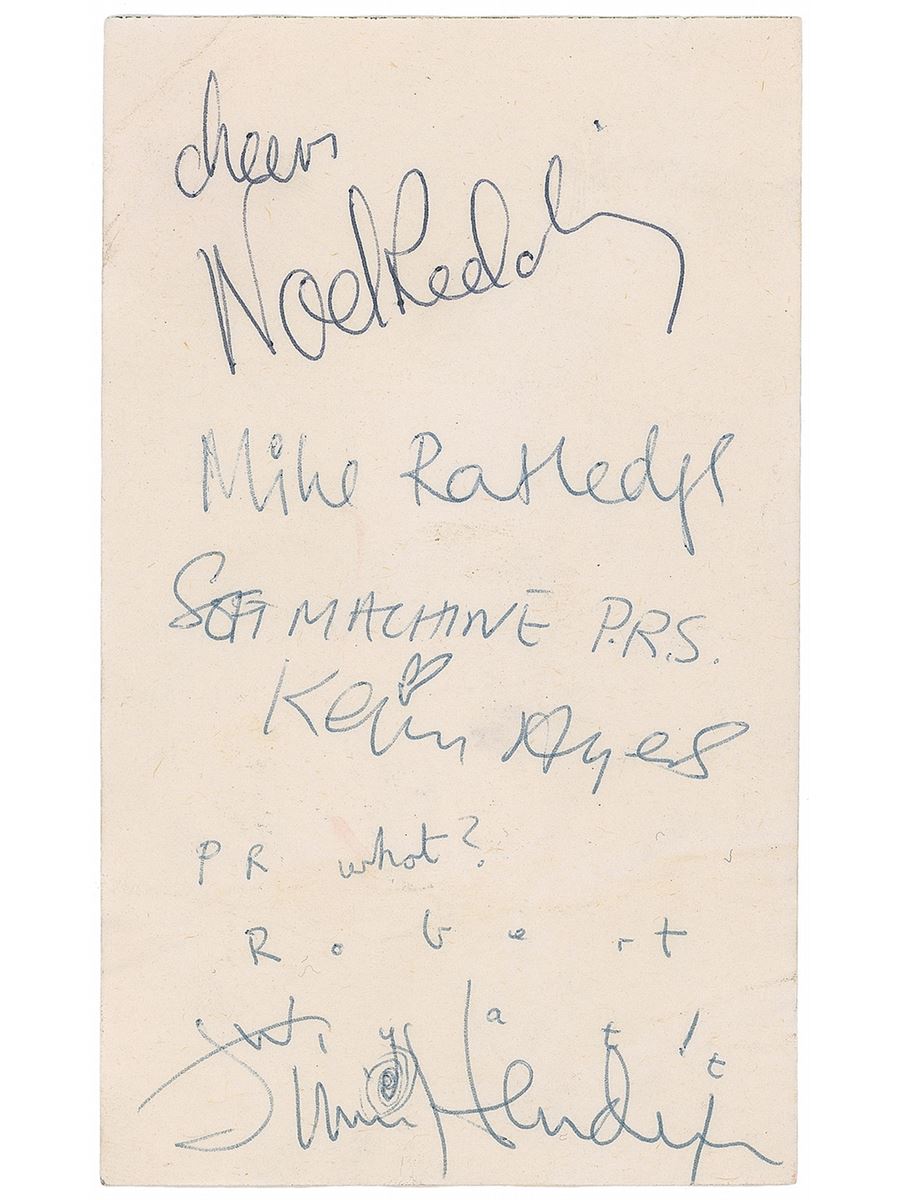 cheers
Noel Reddin
Mike Ratledge
SOFT MACHINE P.R.S.
Kevin Ayers
P R what?
R o b e r t
W y a t t
Jimi Hendrix